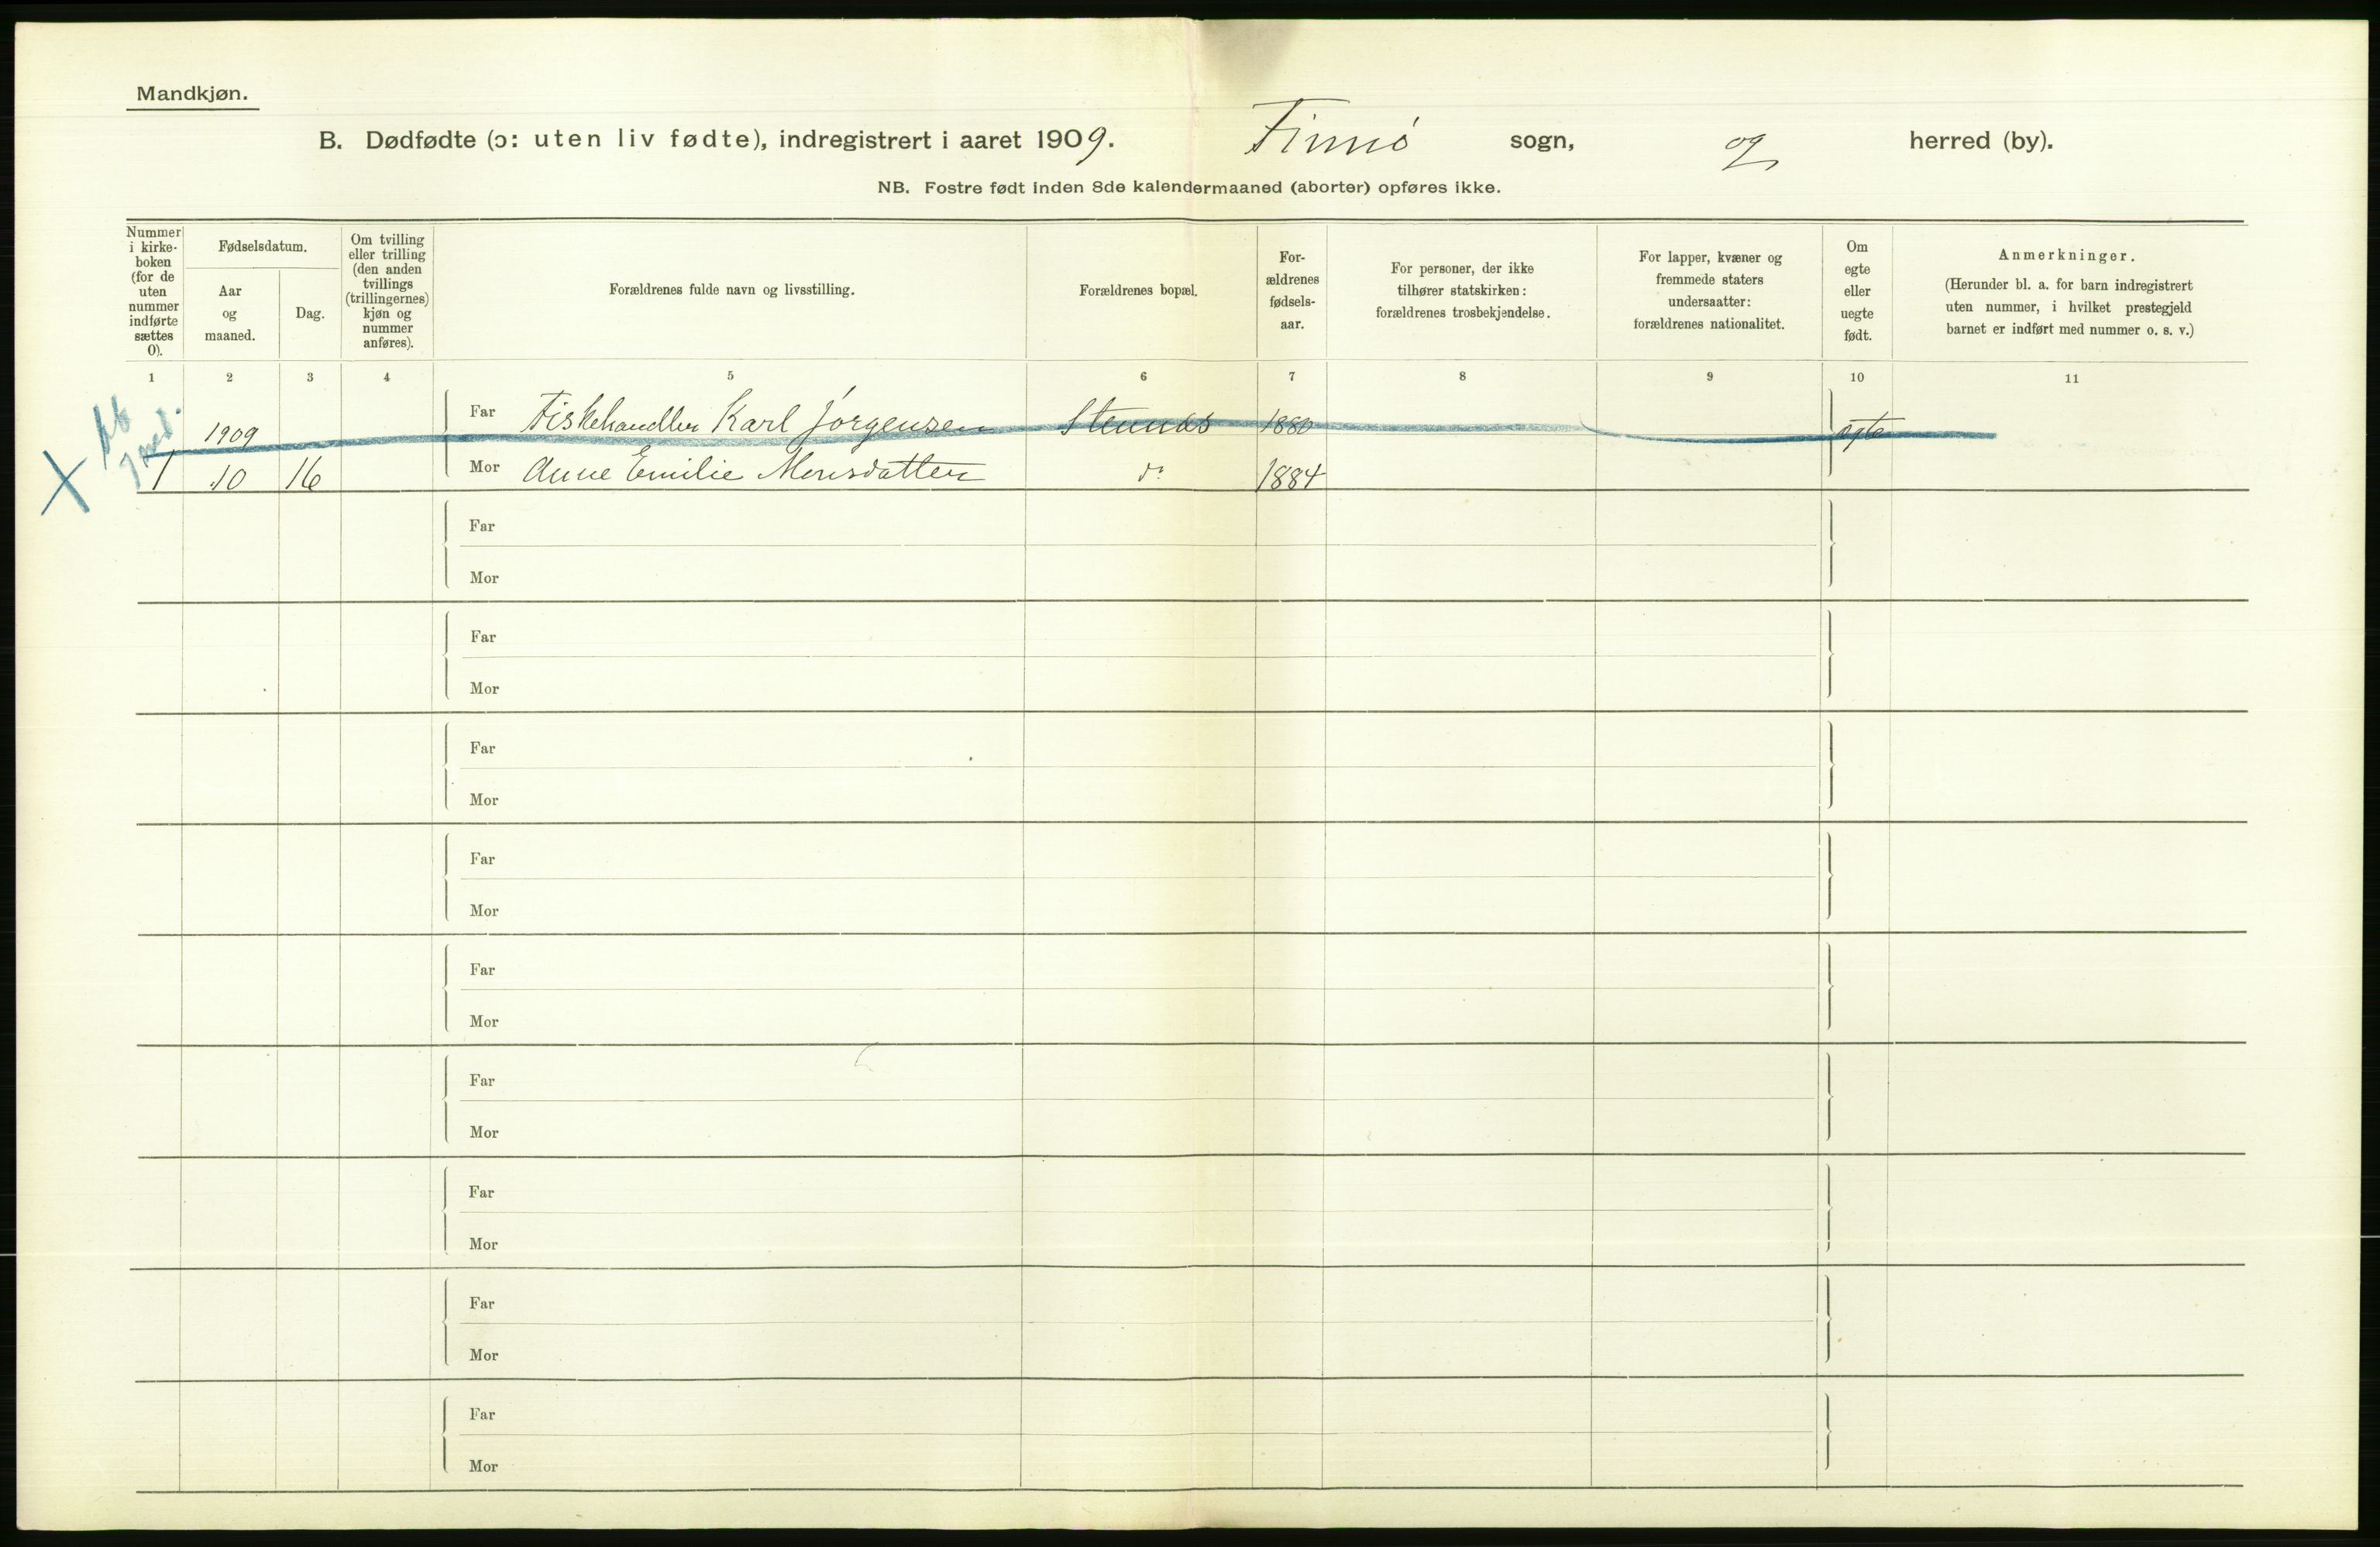 Mandkjøn.
B. Dødfødte (ɔ: uten liv fødte), indregistrert i aaret 1909. Finnö sogn, og herred (by).
NB. Fostre født inden 8de kalendermaaned (aborter) opføres ikke.
Nummer
i kirke-
boken
(for de
uten
nummer
indførte
sættes
0).
Fødselsdatum.
Aar
og
maaned.
Dag.
Om tvilling
eller trilling
(den anden
tvillings
(trillingernes)
kjøn og
nummer
anføres).
Forældrenes fulde navn og livsstilling.
Forældrenes bopæl.
For-
ældrenes
fødsels-
aar.
For personer, der ikke
tilhører statskirken:
forældrenes trosbekjendelse.
For lapper, kvæner og
fremmede staters
undersaatter:
forældrenes nationalitet.
Om
egte
eller
uegte
født.
Anmerkninger.
(Herunder bl. a. for barn indregistrert
uten nummer, i hvilket prestegjeld
barnet er indført med nummer o. s. v.)
1 2 3 4 5 6 7 8 9 10 11
1909 Far Fiskehandler Karl Jörgensen 1880 ægte
X 1 10 16 Mor Anne Emilie Monsdatter do 1884
Far
Mor
Far
Mor
Far
Mor
Far
Mor
Far
Mor
Far
Mor
Far
Mor
Far
Mor
Far
Mor